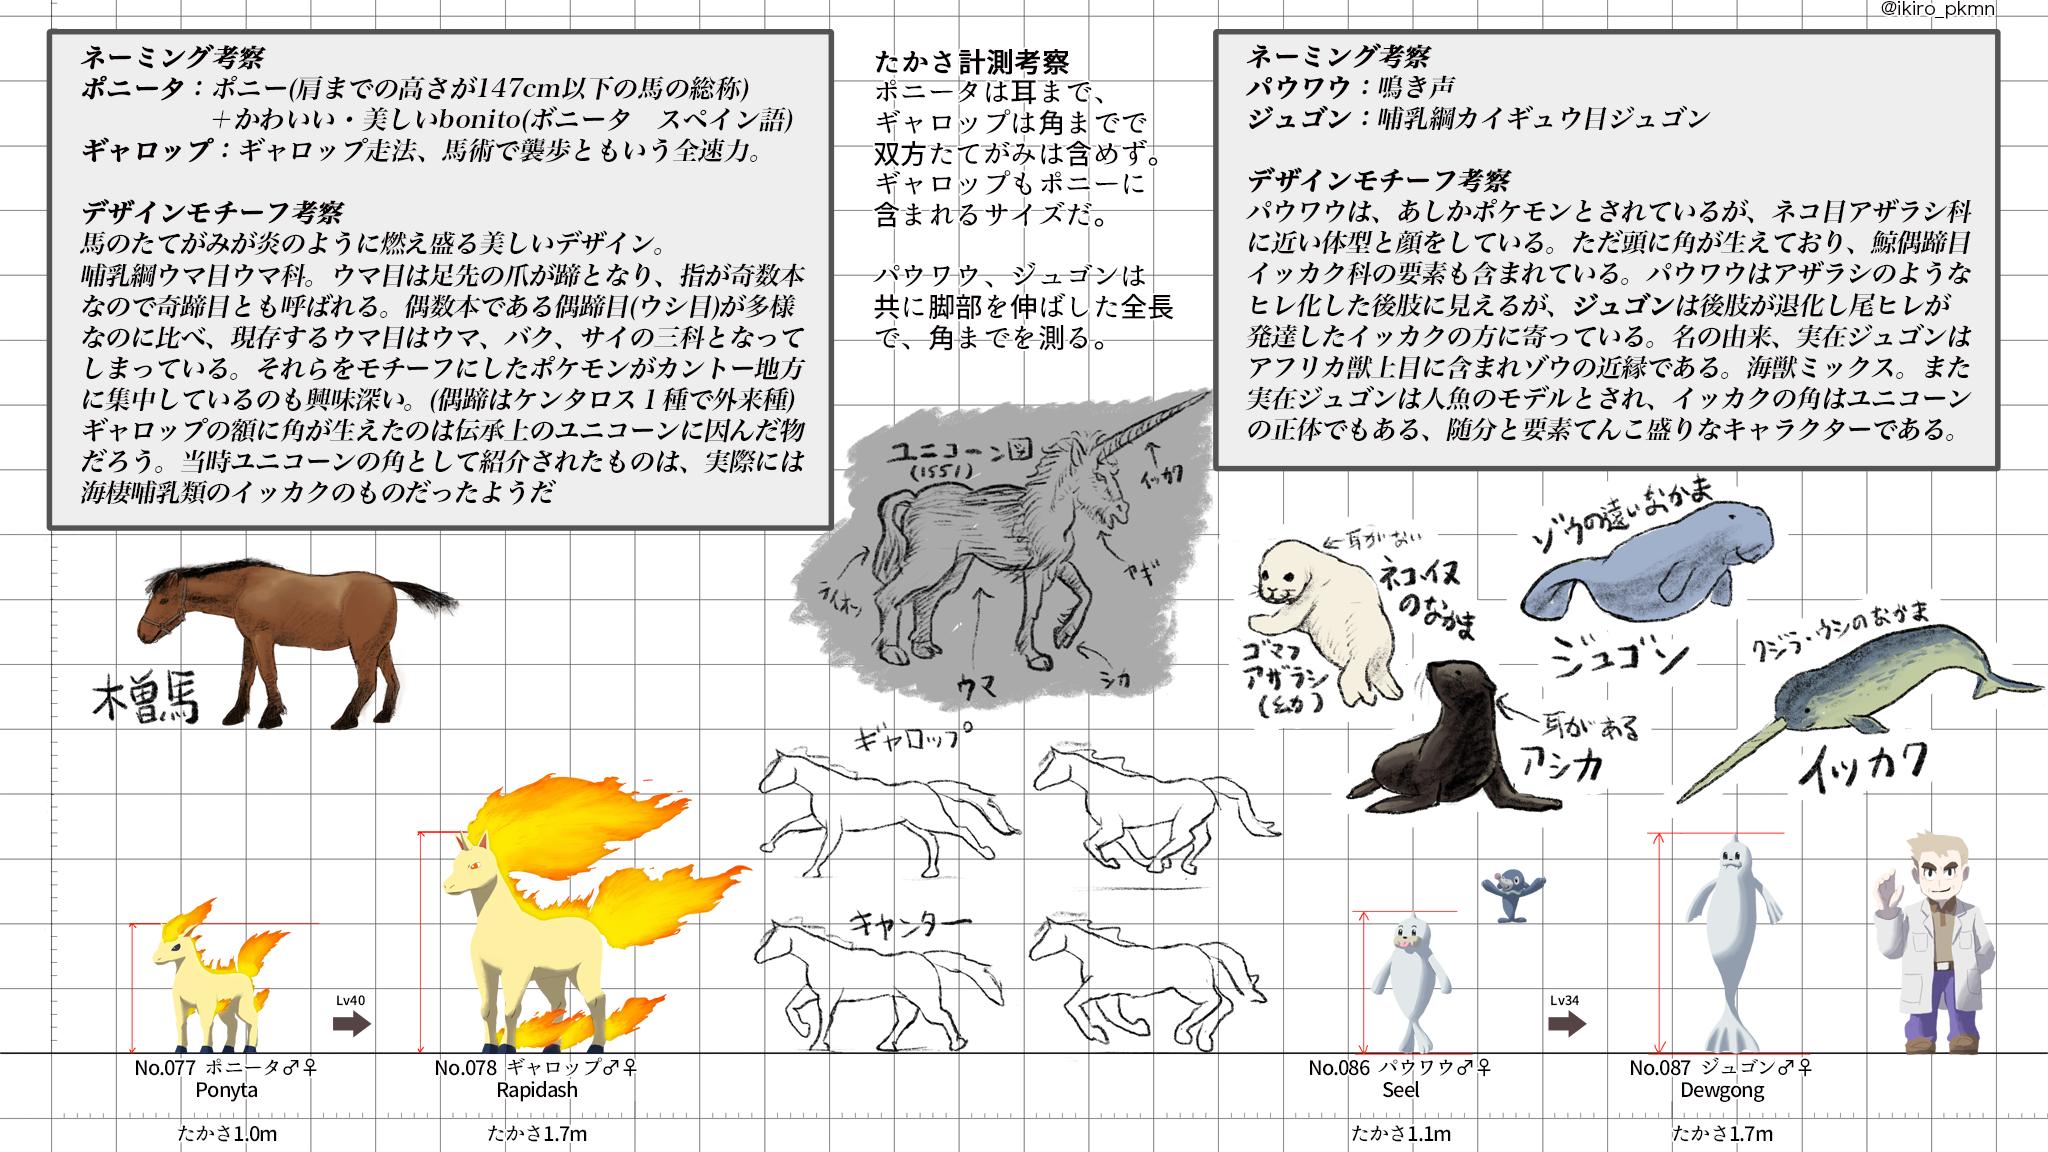 @ikiro_pkmn
ネーミング考察
ポニータ：ポニー(肩までの高さが147cm以下の馬の総称)
＋かわいい・美しいbonito(ボニータ　スペイン語)
ギャロップ：ギャロップ走法、馬術で襲歩ともいう全速力。
デザインモチーフ考察
馬のたてがみが炎のように燃え盛る美しいデザイン。
哺乳綱ウマ目ウマ科。ウマ目は足先の爪が蹄となり、指が奇数本
なので奇蹄目とも呼ばれる。偶数本である偶蹄目(ウシ目)が多様
なのに比べ、現存するウマ目はウマ、バク、サイの三科となって
しまっている。それらをモチーフにしたポケモンがカントー地方
に集中しているのも興味深い。(偶蹄はケンタロス１種で外来種)
ギャロップの額に角が生えたのは伝承上のユニコーンに因んだ物
だろう。当時ユニコーンの角として紹介されたものは、実際には
海棲哺乳類のイッカクのものだったようだ
たかさ計測考察
ポニータは耳まで、
ギャロップは角までで
双方たてがみは含めず。
ギャロップもポニーに
含まれるサイズだ。
パウワウ、ジュゴンは
共に脚部を伸ばした全長
で、角までを測る。
ネーミング考察
パウワウ：鳴き声
ジュゴン：哺乳綱カイギュウ目ジュゴン
デザインモチーフ考察
パウワウは、あしかポケモンとされているが、ネコ目アザラシ科
に近い体型と顔をしている。ただ頭に角が生えており、鯨偶蹄目
イッカク科の要素も含まれている。パウワウはアザラシのような
ヒレ化した後肢に見えるが、ジュゴンは後肢が退化し尾ヒレが
発達したイッカクの方に寄っている。名の由来、実在ジュゴンは
アフリカ獣上目に含まれゾウの近縁である。海獣ミックス。また
実在ジュゴンは人魚のモデルとされ、イッカクの角はユニコーン
の正体でもある、随分と要素てんこ盛りなキャラクターである。
木曽馬
ユニコーン図
(1551)
イッカク
ヤギ
ライオン
ウマ
シカ
ギャロップ
キャンター
←耳がない
ネコ・イヌ
のなかま
ゴマフ
アザラシ
(幼)
ゾウの遠いなかま
ジュゴン
耳がある
アシカ
クジラ・ウシのなかま
イッカク
Lv40
Lv34
No.077 ポニータ♂♀
Ponyta
たかさ1.0m
No.078 ギャロップ♂♀
Rapidash
たかさ1.7m
No.086 パウワウ♂♀
Seel
たかさ1.1m
No.087 ジュゴン♂♀
Dewgong
たかさ1.7m